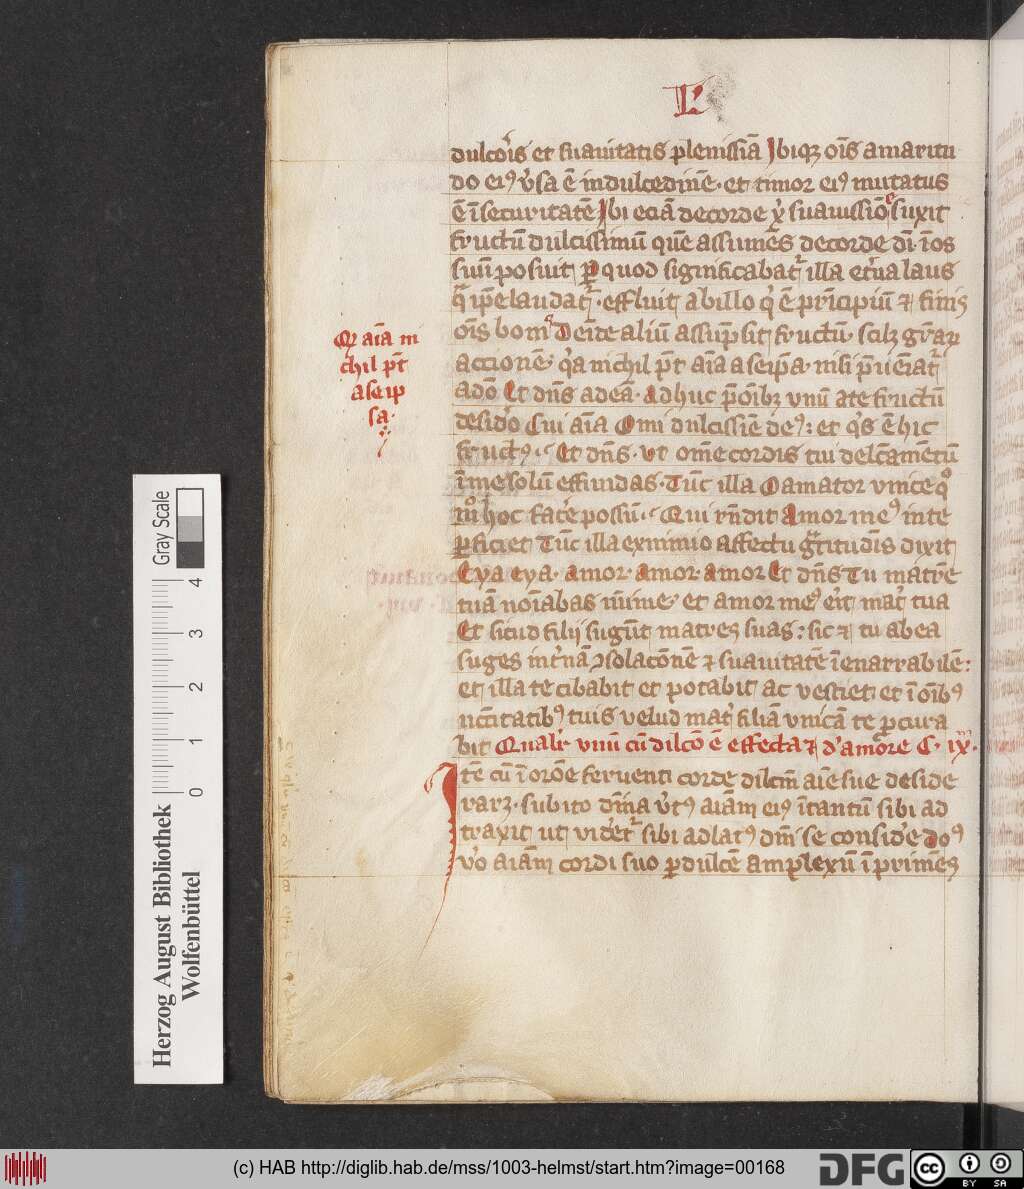 L
dulcoris et suauitatis plenissiā Ibiq; oīs amaritu
do eiꝰ ꝟsa ē in dulcedinē · et timor eiꝰ mutatus
ē ī securitatē Ibi eciā de corde xp̄i suauissīo suxit
fructū dulcissimū quē assumēs de corde dī ī os
suū posuit ꝑ quod significabat᷑ illa et̄na laus
q̄ ip̄e laudat᷑ · effluit ab illo qͥ ē prīcipiū ⁊ finis
oīs boni Deīte aliū assūpsit fructū scilꝫ gr̄aꝝ
accionē qͥa nichil pōt aīa a seip̄a nisi p̄ueīat᷑
a dō Et dn̄s ad eā · Adhuc p̄ oīb; vnū a te fructū
desid̄o Cui aīa O mi dulcissīe deꝰ : et qͥs ē hic
fructꝰ · Et dn̄s · ut om̄e cordis tui delc̄amētū
ī me solū effundas · Tūc illa O amator vnice qͦ
mͦ hoc fac̄e possū · Qui rn̄dit Amor meꝰ in te
ꝑficiet Tūc illa eximio affectu gͣtitudīs dixit
Eya eya · amor · amor · amor Et dn̄s Tu matrē
tuā noīabas mīme et amor meꝰ erit mat̄ tua
Et sicud filij sugūt matres suas : sic ⁊ tu ab ea
suges int̄nā ꝯsolacōnē ⁊ suauitatē īenarrabilē :
et illa te cibabit et potabit ac vestiet et ī oīb ꝰ
nc̄citatibꝰ tuis velud mat̄ filiā vnicā te ꝓcura
bit Qualit̄ vnū cū dilc̄o ē effecta ⁊ d' amore C · ix ·
Itē cū ī orōe feruenti corde dilcm̄ aīe sue deside
raret · subito dīna v̄tꝰ aīam eiꝰ ītantū sibi ad
traxit ut vid̄et᷑ sibi ad latꝰ dn̄i se consid̄e Doꝰ
v̄o aīam cordi suo ꝑ dulcē amplexū īprimēs
Qͩ aīa ni
chil pōt
a seip
sa ·
Gray Scale
4
3
2
1
0
Herzog August Bibliothek
Wolfenbüttel
(c) HAB http://diglib.hab.de/mss/1003-helmst/start.htm?image=00168
DFG
cc
BY SA